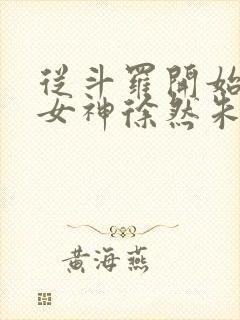 從斗羅開始
女神徐然朱
黃海燕